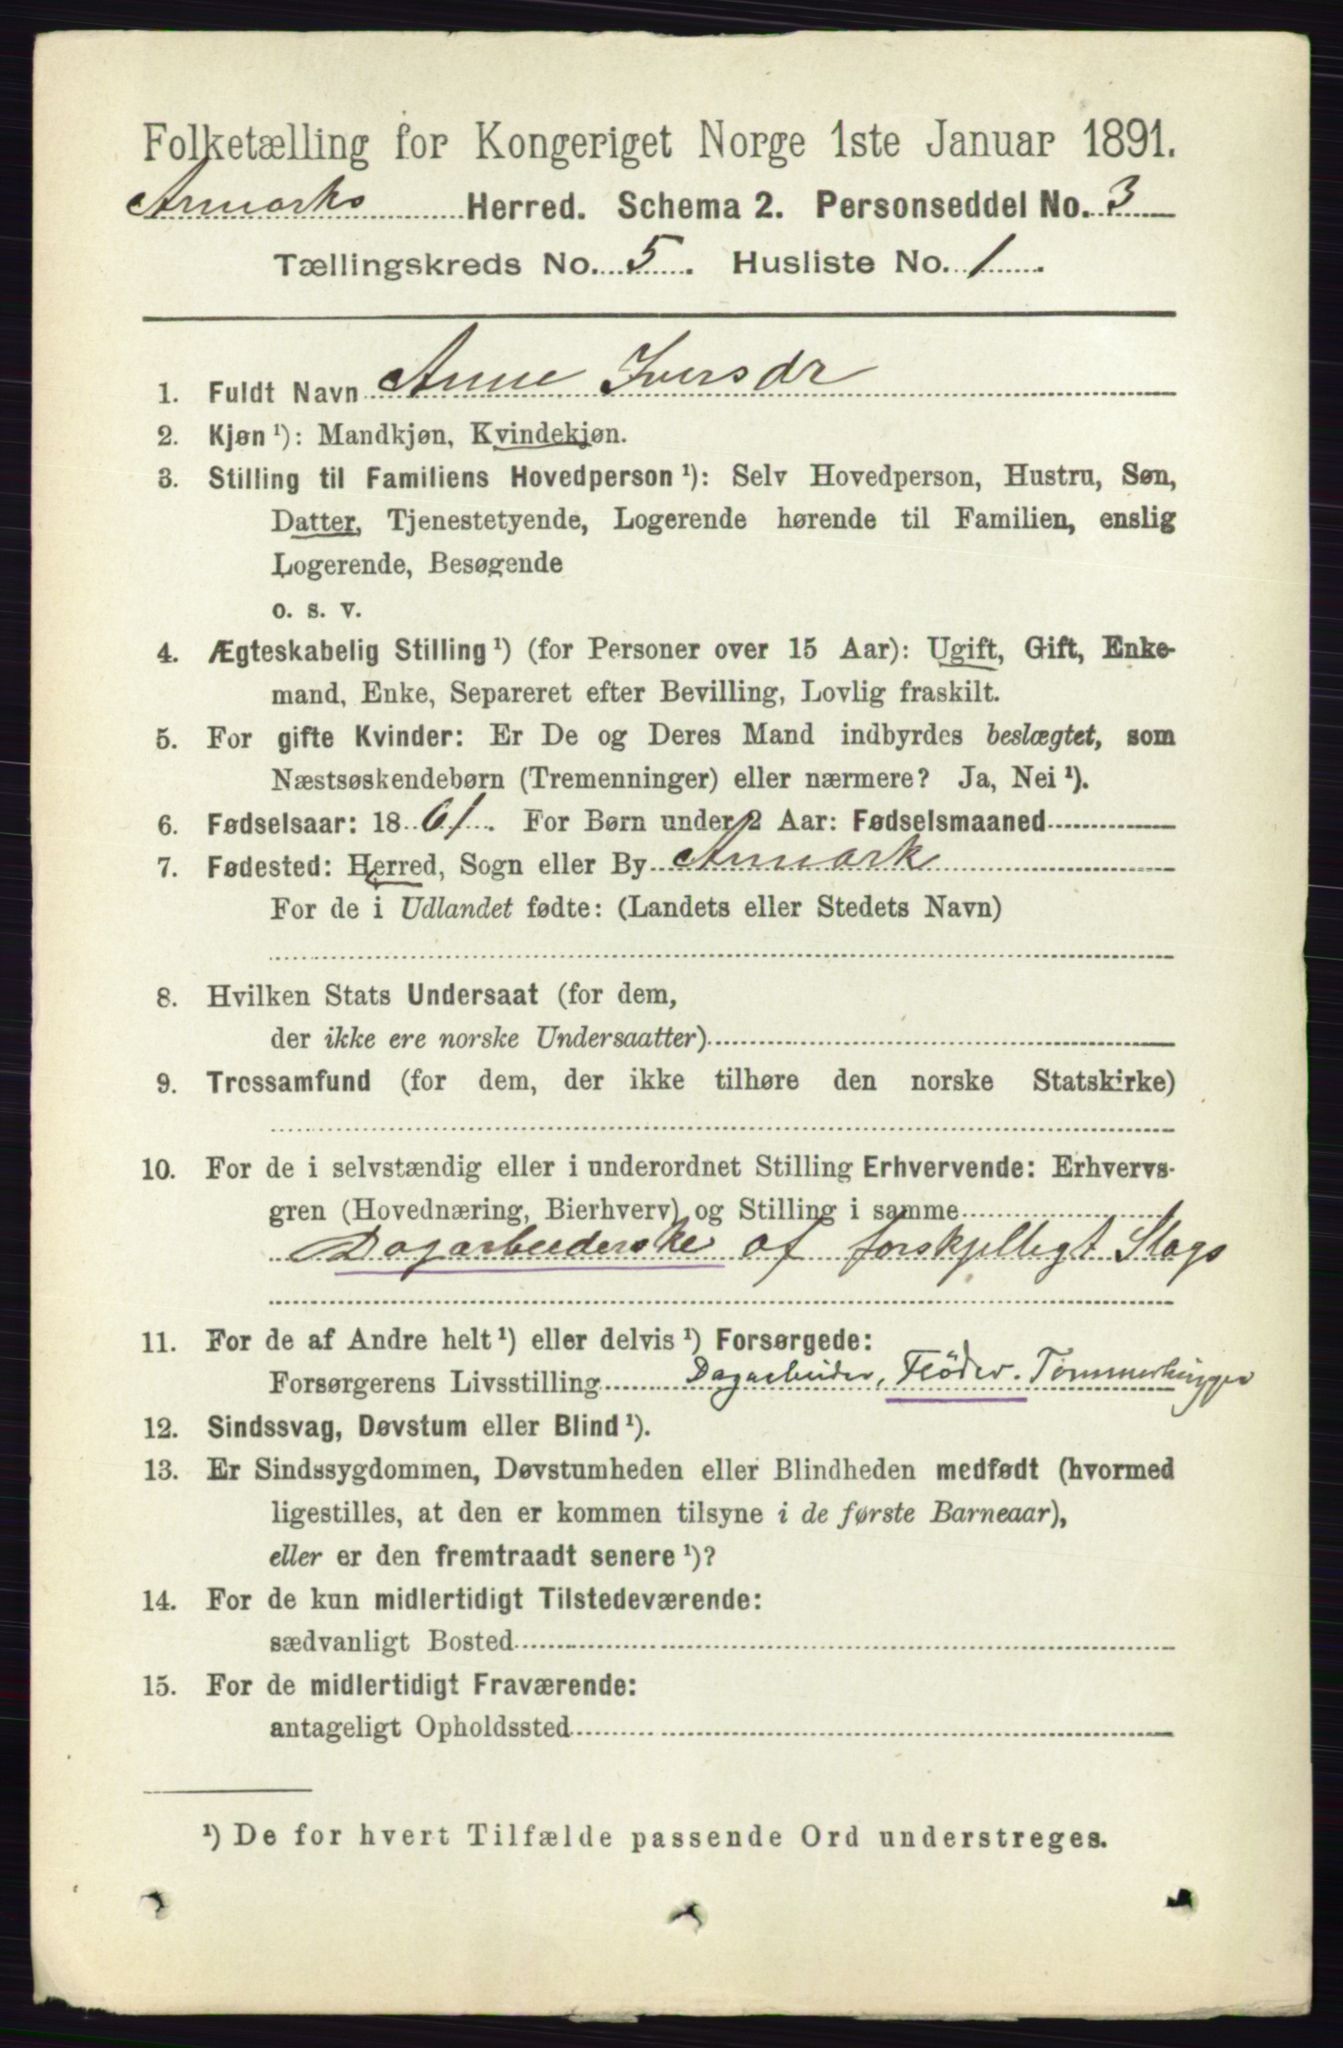 Folketælling for Kongeriget Norge 1ste Januar 1891.
Aremarks Herred. Schema 2. Personseddel No. 3
Tællingskreds No. 5. Husliste No. 1.
1. Fuldt Navn Anne Iversdr
2. Kjøn ¹): Mandkjøn, Kvindekjøn.
3. Stilling til Familiens Hovedperson ¹): Selv Hovedperson, Hustru, Søn,
Datter, Tjenestetyende, Logerende hørende til Familien, enslig
Logerende, Besøgende
o. s. v.
4. Ægteskabelig Stilling ¹) (for Personer over 15 Aar): Ugift, Gift, Enke-
mand, Enke, Separeret efter Bevilling, Lovlig fraskilt.
5. For gifte Kvinder: Er De og Deres Mand indbyrdes beslægtet, som
Næstsøskendebørn (Tremenninger) eller nærmere? Ja, Nei ¹).
6. Fødselsaar: 1861. For Børn under 2 Aar: Fødselsmaaned
7. Fødested: Herred, Sogn eller By Aremark
For de i Udlandet fødte: (Landets eller Stedets Navn)
8. Hvilken Stats Undersaat (for dem,
der ikke ere norske Undersaatter)
9. Trossamfund (for dem, der ikke tilhøre den norske Statskirke)
10. For de i selvstændig eller i underordnet Stilling Erhvervende: Erhvervs-
gren (Hovednæring, Bierhverv) og Stilling i samme
Dagarbeiderske af forskjelligt Slags
11. For de af Andre helt ¹) eller delvis ¹) Forsørgede:
Forsørgerens Livsstilling Dagarbeider, Fløder. Tømmerhugger
12. Sindssvag, Døvstum eller Blind ¹).
13. Er Sindssygdommen, Døvstumheden eller Blindheden medfødt (hvormed
ligestilles, at den er kommen tilsyne i de første Barneaar),
eller er den fremtraadt senere ¹)?
14. For de kun midlertidigt Tilstedeværende:
sædvanligt Bosted
15. For de midlertidigt Fraværende:
antageligt Opholdssted
¹) De for hvert Tilfælde passende Ord understreges.